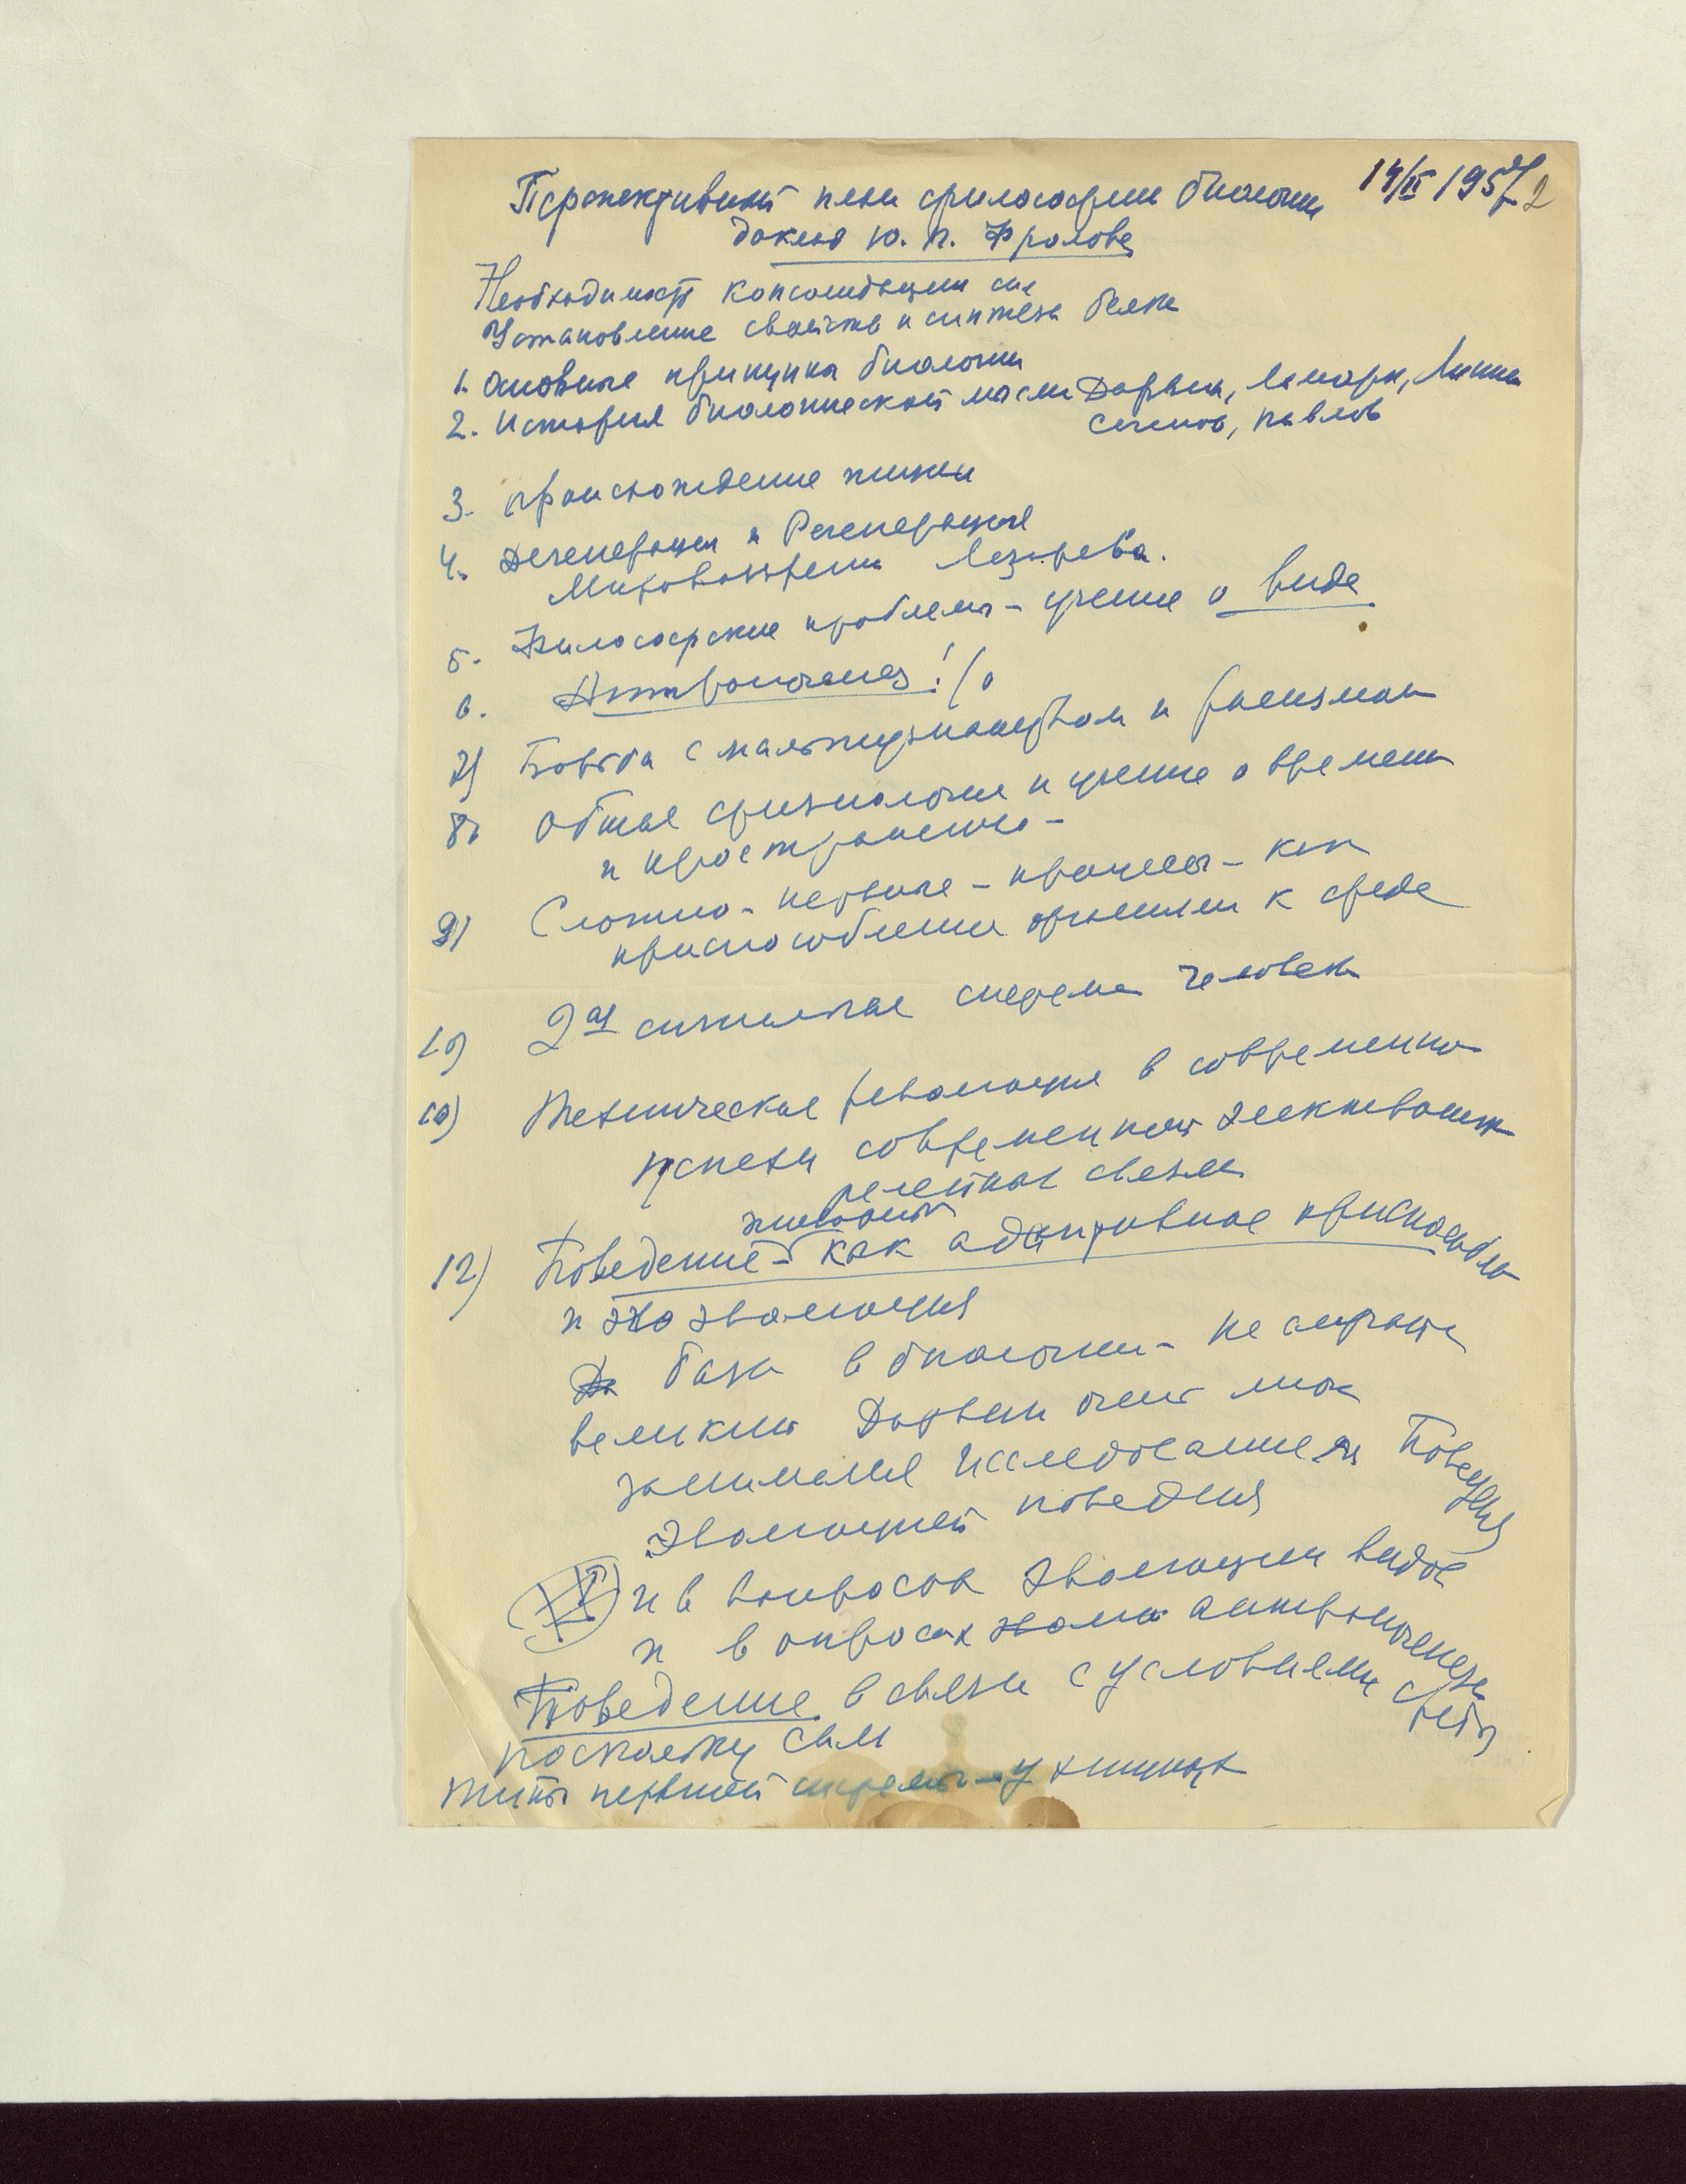 Перспективный план философии биологии 14/II 1957 2
доклад Ю. П. Фролова
Необходимость консолидации сил
Установление свойств и синтеза белка
1. Основные принципы биологии
2. История биологической мысли Дарвин, Ламарк, Линней
Сеченов, Павлов
3. Происхождение жизни
4. Дегенерация и Регенерация
Мировоззрение Лазарева.
5. Философские проблемы – учение о виде
6. Антропогенез!
7) Борьба с мальтузианством и расизмом
8) Общая физиология и учение о времени
и пространстве –
9) Сложно-нервные – процессы – как
приспособление организма к среде
10) 2ая сигнальная система человека
10) Техническая революция в современно
успехи современной
релейная связи
животных
12) Поведение – как адаптивное приспособле
и эволюция
база в биологии – не
великий Дарвин очень много
занимался исследованием Поведения
Эволюцией поведения
и в вопросах эволюции видов
и вопросах антропогенеза
Поведение в связи с условиями среды
поскольку
типы нервной системы – у хищных